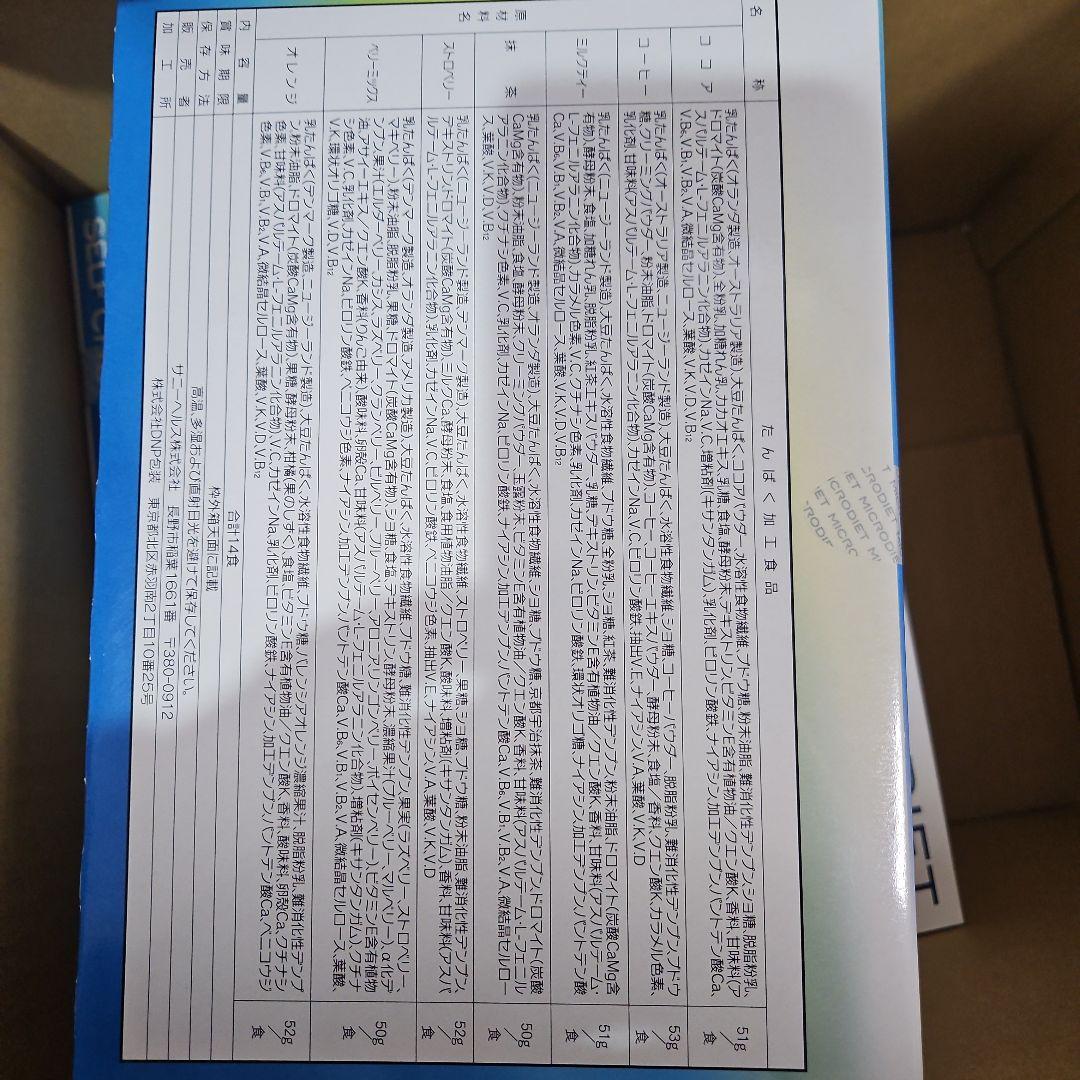 名　称
たんぱく加工食品
原材料名
ココア
乳たんぱく(オランダ製造、オーストラリア製造)、大豆たんぱく、ココアパウダー、水溶性食物繊維、ブドウ糖、粉末油脂、難消化性デンプン、ショ糖、脱脂粉乳、
ドロマイト(炭酸CaMg含有物)、全粉乳、加糖れん乳、カカオエキス、乳糖、食塩、酵母粉末、デキストリン、ビタミンE含有植物油／クエン酸K、香料、甘味料(ア
スパルテーム・L-フェニルアラニン化合物)、カゼインNa、V.C、増粘剤(キサンタンガム)、乳化剤、ピロリン酸鉄、ナイアシン、加工デンプン、パントテン酸Ca、
V.B₆、V.B₁、V.B₂、V.A、微結晶セルロース、葉酸、V.K、V.D、V.B₁₂
51g／食
コーヒー
乳たんぱく(オーストラリア製造、ニュージーランド製造)、大豆たんぱく、水溶性食物繊維、ショ糖、コーヒーパウダー、脱脂粉乳、難消化性デンプン、ブドウ
糖、クリーミングパウダー、粉末油脂、ドロマイト(炭酸CaMg含有物)、コーヒー、コーヒーエキスパウダー、酵母粉末、食塩／香料、クエン酸K、カラメル色素、
乳化剤、甘味料(アスパルテーム・L-フェニルアラニン化合物)、カゼインNa、V.C、ピロリン酸鉄、抽出V.E、ナイアシン、V.A、葉酸、V.K、V.D
53g／食
ミルクティー
乳たんぱく(ニュージーランド製造)、大豆たんぱく、水溶性食物繊維、ブドウ糖、全粉乳、ショ糖、紅茶、難消化性デンプン、粉末油脂、ドロマイト(炭酸CaMg含
有物)、酵母粉末、食塩、加糖れん乳、脱脂粉乳、紅茶エキスパウダー、乳糖、デキストリン、ビタミンE含有植物油／クエン酸K、香料、甘味料(アスパルテーム・
L-フェニルアラニン化合物)、カラメル色素、V.C、クチナシ色素、乳化剤、カゼインNa、ピロリン酸鉄、環状オリゴ糖、ナイアシン、加工デンプン、パントテン酸
Ca、V.B₆、V.B₁、V.B₂、V.A、微結晶セルロース、葉酸、V.K、V.D、V.B₁₂
51g／食
抹茶
乳たんぱく(ニュージーランド製造、オランダ製造)、大豆たんぱく、水溶性食物繊維、ショ糖、ブドウ糖、京都宇治抹茶、難消化性デンプン、ドロマイト(炭酸
CaMg含有物)、粉末油脂、食塩、酵母粉末、クリーミングパウダー、玉露粉末、ビタミンE含有植物油／クエン酸K、香料、甘味料(アスパルテーム・L-フェニル
アラニン化合物)、クチナシ色素、V.C、乳化剤、カゼインNa、ピロリン酸鉄、ナイアシン、加工デンプン、パントテン酸Ca、V.B₆、V.B₁、V.B₂、V.A、微結晶セルロー
ス、葉酸、V.K、V.D、V.B₁₂
50g／食
ストロベリー
乳たんぱく(ニュージーランド製造、デンマーク製造)、大豆たんぱく、水溶性食物繊維、ストロベリー、果糖、ショ糖、ブドウ糖、粉末油脂、難消化性デンプン、
デキストリン、ドロマイト(炭酸CaMg含有物)、ミルクCa、酵母粉末、食塩、食用植物油脂／クエン酸K、酸味料、増粘剤(キサンタンガム)、香料、甘味料(アスパ
ルテーム・L-フェニルアラニン化合物)、乳化剤、カゼインNa、V.C、ピロリン酸鉄、ベニコウジ色素、抽出V.E、ナイアシン、V.A、葉酸、V.K、V.D
52g／食
ベリーミックス
乳たんぱく(デンマーク製造、オランダ製造、アメリカ製造)、大豆たんぱく、水溶性食物繊維、ブドウ糖、難消化性デンプン、果実(ラズベリー、ストロベリー、
マキベリー)、粉末油脂、脱脂粉乳、果糖、ドロマイト(炭酸CaMg含有物)、ショ糖、食塩、デキストリン、酵母粉末、濃縮果汁(ブルーベリー、マルベリー)、α化デ
ンプン、果汁(エルダーベリー、カシス、ラズベリー、クランベリー、ビルベリー、ブルーベリー、アロニア、リンゴンベリー、ボイセンベリー)、ビタミンE含有植物
油、アサイーエキス／クエン酸K、香料(りんご由来)、酸味料、卵殻Ca、甘味料(アスパルテーム・L-フェニルアラニン化合物)、増粘剤(キサンタンガム)、クチナ
シ色素、V.C、乳化剤、カゼインNa、ピロリン酸鉄、ベニコウジ色素、ナイアシン、加工デンプン、パントテン酸Ca、V.B₆、V.B₁、V.B₂、V.A、微結晶セルロース、葉酸、
V.K、環状オリゴ糖、V.D、V.B₁₂
50g／食
オレンジ
乳たんぱく(デンマーク製造、ニュージーランド製造)、大豆たんぱく、水溶性食物繊維、ブドウ糖、バレンシアオレンジ濃縮果汁、脱脂粉乳、難消化性デンプ
ン、粉末油脂、ドロマイト(炭酸CaMg含有物)、果糖、酵母粉末、柑橘(果のしずく)、食塩、ビタミンE含有植物油／クエン酸K、香料、酸味料、卵殻Ca、クチナシ
色素、甘味料(アスパルテーム・L-フェニルアラニン化合物)、V.C、カゼインNa、乳化剤、ピロリン酸鉄、ナイアシン、加工デンプン、パントテン酸Ca、ベニコウジ
色素、V.B₆、V.B₁、V.B₂、V.A、微結晶セルロース、葉酸、V.K、V.D、V.B₁₂
52g／食
内容量
合計14食
賞味期限
枠外箱天面に記載
保存方法
高温、多湿および直射日光を避けて保存してください。
販売者
サニーヘルス株式会社　長野市稲葉1661番　〒380-0912
加工所
株式会社DNP包装　東京都北区赤羽南2丁目10番25号
CRODIET
MICRODIET
IET MICRO
DIET